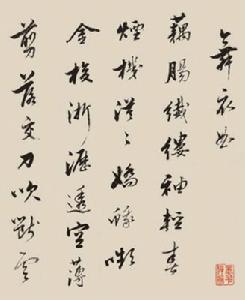 舞衣曲
藕腸纖縷抽輕春
煙機漠々嬌娥嚬
金梭淅瀝透空薄
剪落交刀吹斷雲